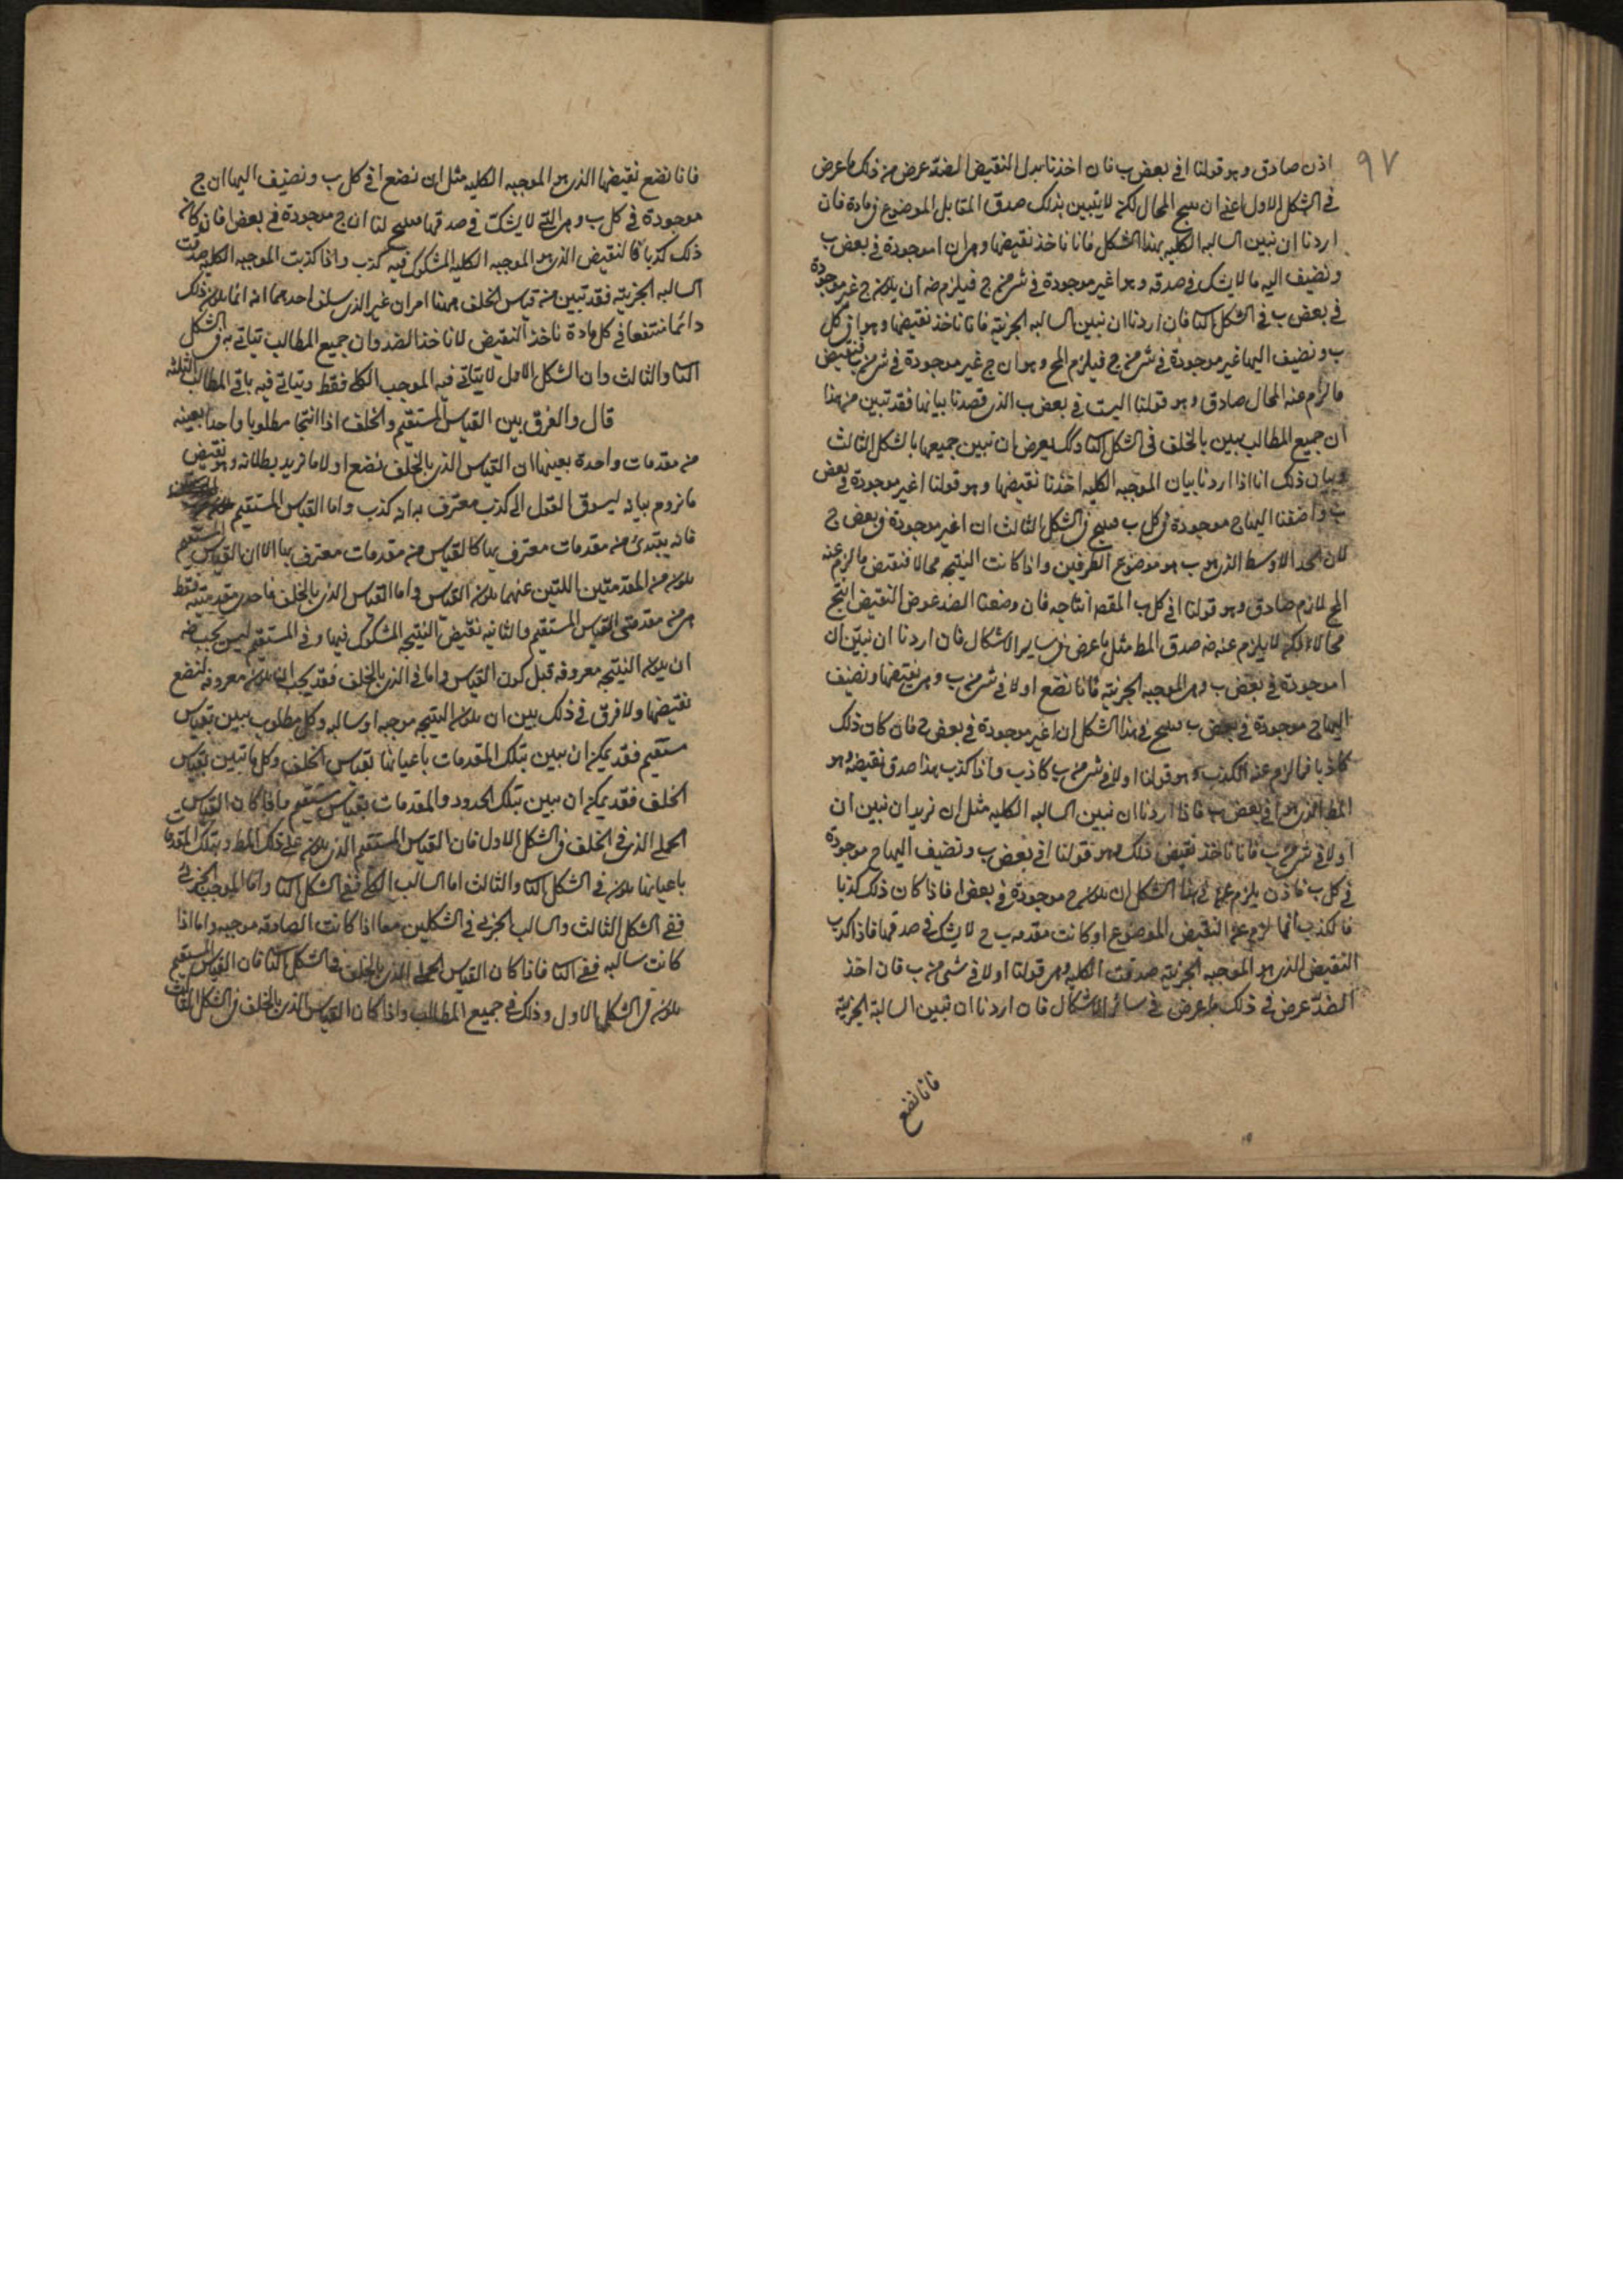 ٩٧
اذن صادق وهو قولنا ا فى بعض ب فان اخذنا بدل النقيض الضد عرض من ذلك ما عرض
فى الشكل الاول اعنى ان ينتج المحال لكن لا يتبين بذلك صدق المقابل الموضوع فى مادة فان
اردنا ان نبين السالبه الكليه بهذا الشكل فانا ناخذ نقيضها وهو ان ا موجودة فى بعض ب
ونضيف اليه ما لا يشك فى صدقه وهو ا غير موجودة فى شى من ج فيلزم منه ان يكون ج غير موجودة
فى بعض ب فى الشكل الثا فان اردنا ان نبين السالبه الجزئيه فانا ناخذ نقيضها وهو ا فى كل
ب ونضيف اليها غير موجودة فى شى من ج فيلزم المح وهو ان ج غير موجودة فى شى من ب فنقيض
ما لزم عنه المحال صادق وهو قولنا ا ليست فى بعض ب الذى قصدنا بيانها فقد تبين من هذا
ان جميع المطالب تبين بالخلف فى الشكل الثا وكك يعرض ان نبين جميعها بالشكل الثالث
وبيان ذلك انا اذا اردنا بيان الموجبه الكليه اخذنا نقيضها وهو قولنا ا غير موجودة فى بعض
ب واضفنا اليها ج موجودة فى كل ب فينتج فى الشكل الثالث ان ا غير موجودة فى بعض ج
لان الحد الاوسط الذى هو ب هو موضوع الطرفين واذا كانت النتيجه محالا فنقيض ما لزم عنه
المح لازم صادق وهو قولنا ا فى كل ب المقصـ انتاجه فان وضعنا الضد عوض النقيض انتج
محالا ولكن لا يلزم عنه صدق المط مثل ما عرض فى ساير الاشكال فان اردنا ان نبين ان
ا موجودة فى بعض ب وهى الموجبه الجزئيه فانا نضع ا ولا فى شى من ب وهو نقيضها ونضيف
اليها ج موجودة فى بعض ب فينتج فى هذا الشكل ان ا غير موجودة فى بعض ج فان كان ذلك
كاذبا فما لزم عنه الكذب وهو قولنا ا ولا فى شى من ب كاذب واذا كذب هذا صدق نقيضه وهو
المط الذى هو ا فى بعض ب فاذا اردنا ان نبين السالبه الكليه مثل ان نريد ان نبين ان
ا ولا فى شى من ب فانا ناخذ نقيض ذلك وهو قولنا ا فى بعض ب ونضيف اليها ج موجودة
فى كل ب فاذن يلزم عنها فى هذا الشكل ان يكون ج موجودة فى بعض ا فاذا كان ذلك كذبا
فالكذب انما لزم عن النقيض الموضوع او كانت مقدمه ب ج لا يشك فى صدقها فاذا كذب
النقيض الذى هو الموجبه الجزئيه صدقت الكليه وهو قولنا ا ولا فى شى من ب فان اخذ
الضد عرض فى ذلك ما عرض فى سائر الاشكال فان اردنا ان نبين السالبة الجزئية
فانا نضع
فانا نضع نقيضها الذى هو الموجبه الكليه مثل ان نضع ا فى كل ب ونضيف اليها ان ج
موجودة فى كل ب وهى التى لا يشك فى صدقها فينتج لنا ان ج موجودة فى بعض ا فان كان
ذلك كذبا فالنقيض الذى هو الموجبه الكليه المشكوك فيه كذب واذا كذبت الموجبه الكليه صدقت
السالبه الجزئيه فقد تبين من قياس الخلف ههنا امران غير الذى سلف احدهما انه انما يكون ذلك
دائما منتفعا فى كل مادة ناخذ النقيض لا ناخذ الضد وان جميع المطالب يتاتى به فى الشكل
الثا والثالث وان الشكل الاول لا يتاتى فيه الموجب الكلى فقط ويتاتى فيه باقى المطالب الثلثه
قال والفرق بين القياس المستقيم والخلف اذا انتجا مطلوبا واحدا بعينه
من مقدمات واحدة بعينها ان القياس الذى بالخلف نضع اولا ما نريد بطلانه وهو نقيض
ما نروم بيانه ليسوق القول الى كذب معترف به انه كذب واما القياس المستقيم
فانه يبتدئ من مقدمات معترف بها كالقياس من مقدمات معترف بها الا ان القياس المستقيم
يكون من المقدمتين اللتين عنهما يكون القياس واما القياس الذى بالخلف فاحدى مقدمتيه فقط
هى من مقدمتى القياس المستقيم والثانيه نقيض النتيجه المشكوك فيها وفى المستقيم ليس يجب منه
ان يكون النتيجه معروفه قبل كون القياس واما فى الذى بالخلف فقد يجب ان يكون معروفه لنضع
نقيضها ولا فرق فى ذلك بين ان يكون النتيجه موجبه او سالبه وكل مطلوب تبين بقياس
مستقيم فقد يمكن ان تبين بتلك المقدمات باعيانها بقياس الخلف وكل ما تبين بقياس
الخلف فقد يمكن ان تبين بتلك الحدود والمقدمات بقياس مستقيم فاذا كان القياس
الحملى الذى فى الخلف فى الشكل الاول فان القياس المستقيم الذى يكون على ذلك المط وبتلك المقدمات
باعيانها يكون فى الشكل الثا والثالث اما السالب الكلى ففى الشكل الثا واما الموجب الجزئى
ففى الشكل الثالث والسالب الجزئى فى الشكلين معا اذا كانت الصادقه موجبه واما اذا
كانت سالبه ففى الثا فاذا كان القياس الحملى الذى بالخلف فى الشكل الثا فان القياس المستقيم
يكون فى الشكل الاول وذلك فى جميع المطالب واذا كان القياس الذى بالخلف فى الشكل الثالث